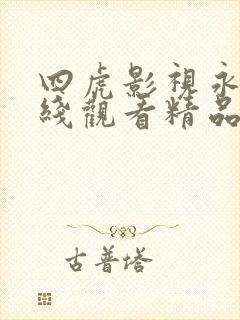 四虎影視永
綫觀看精品
古普塔